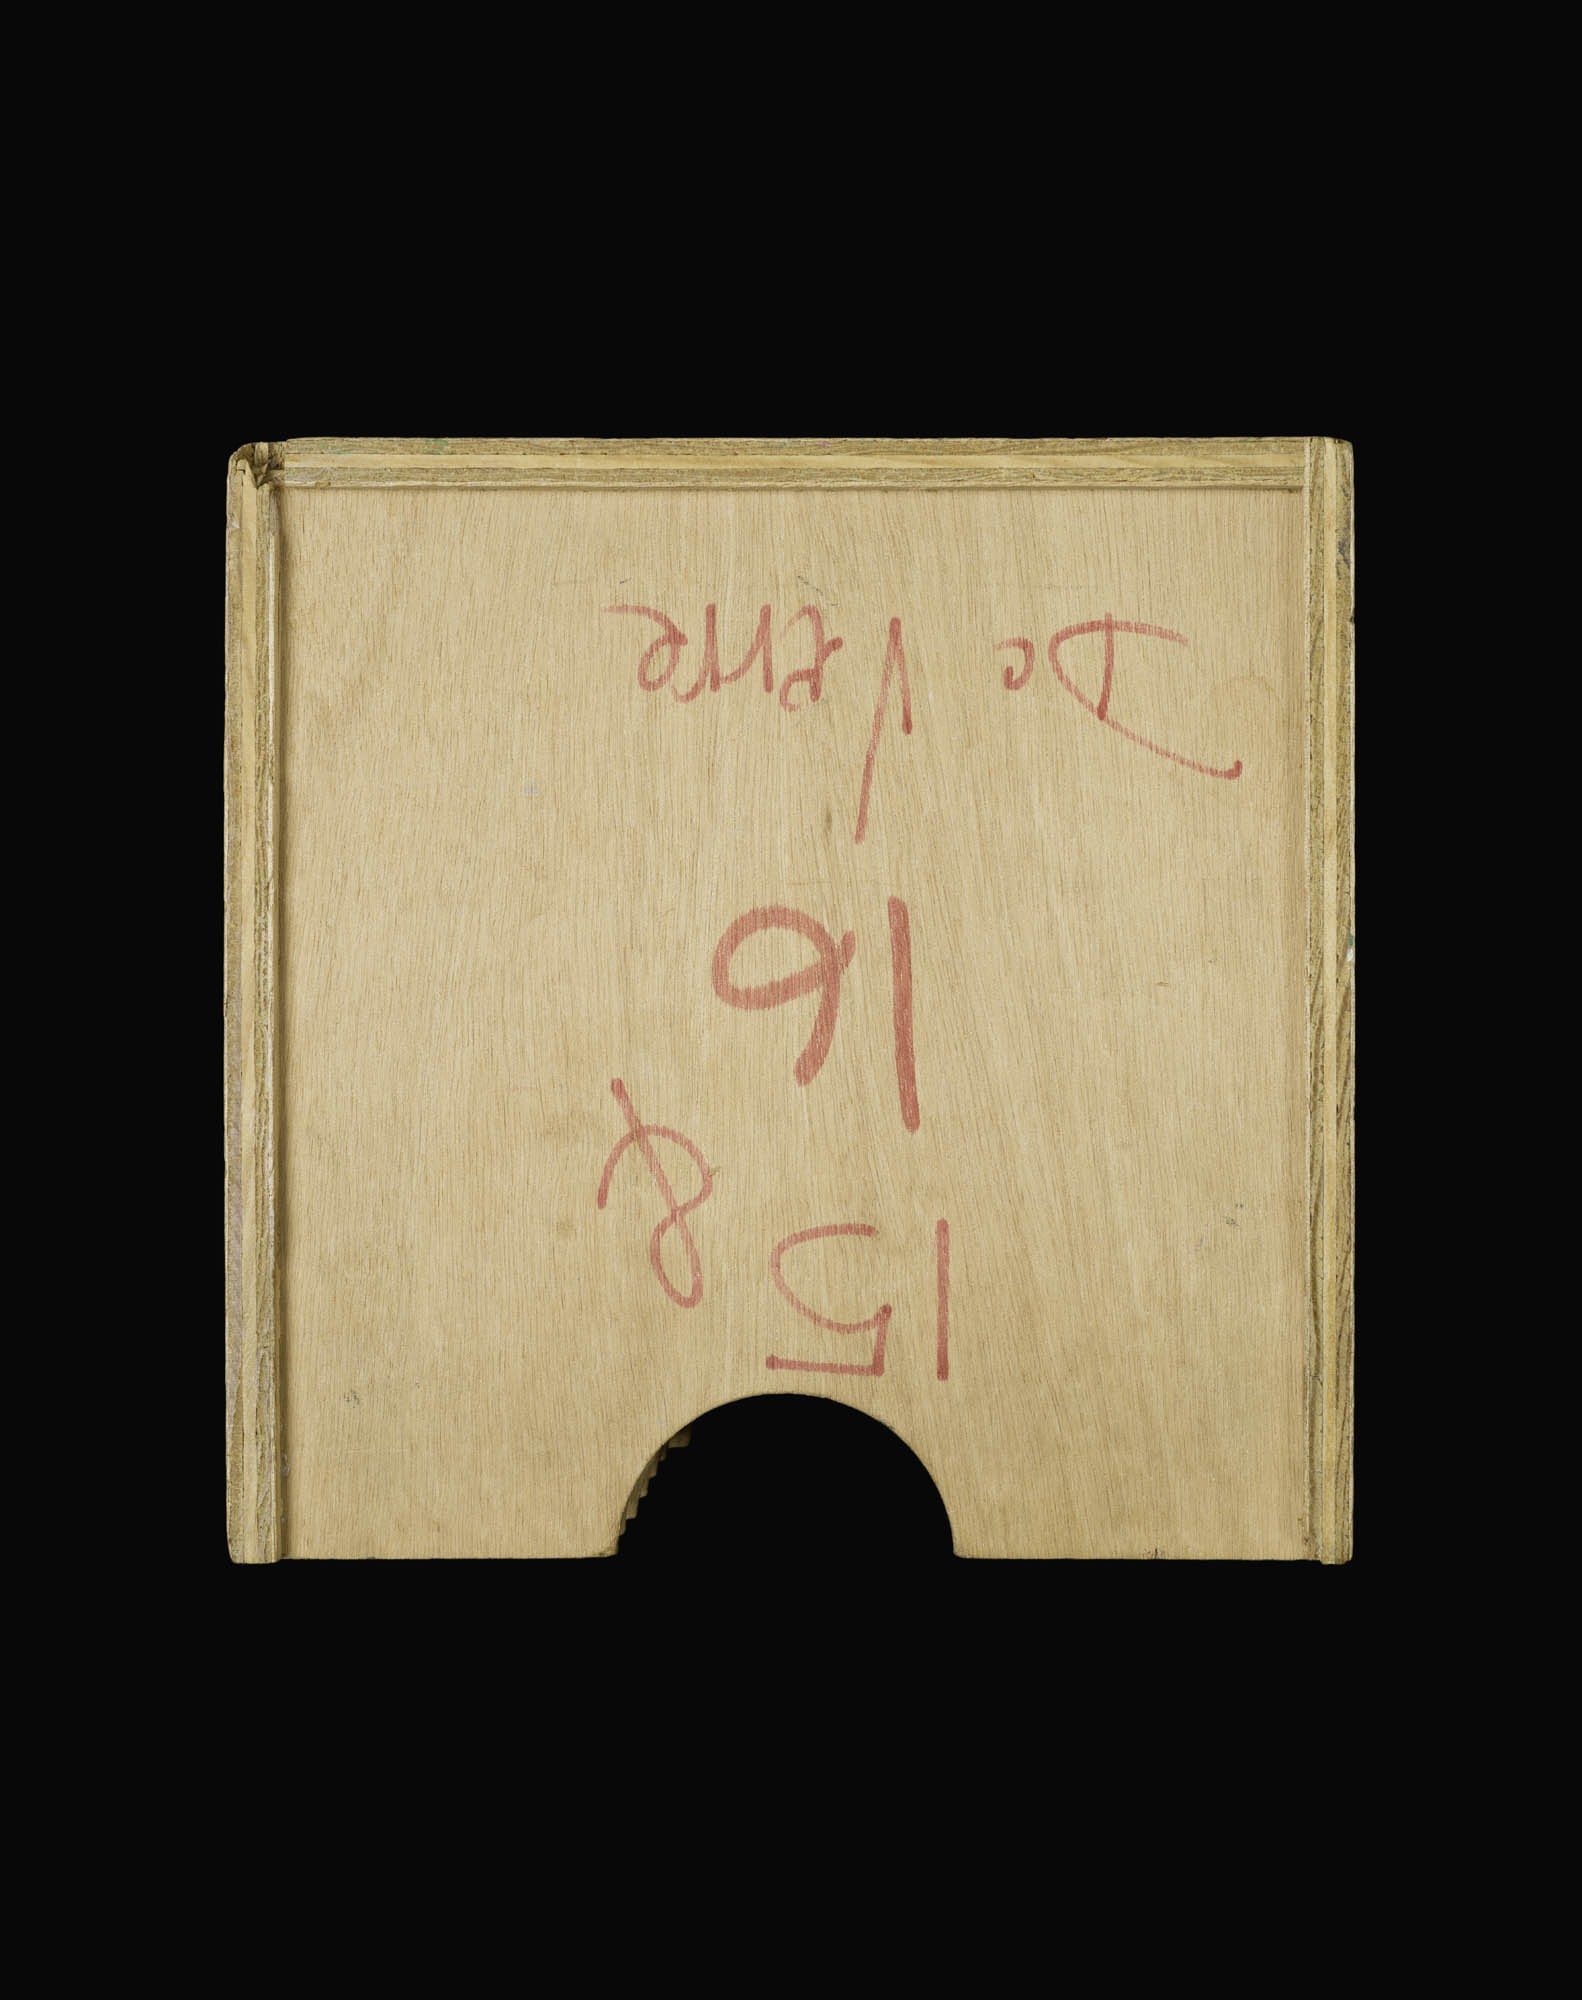 15 &
16
De Verre